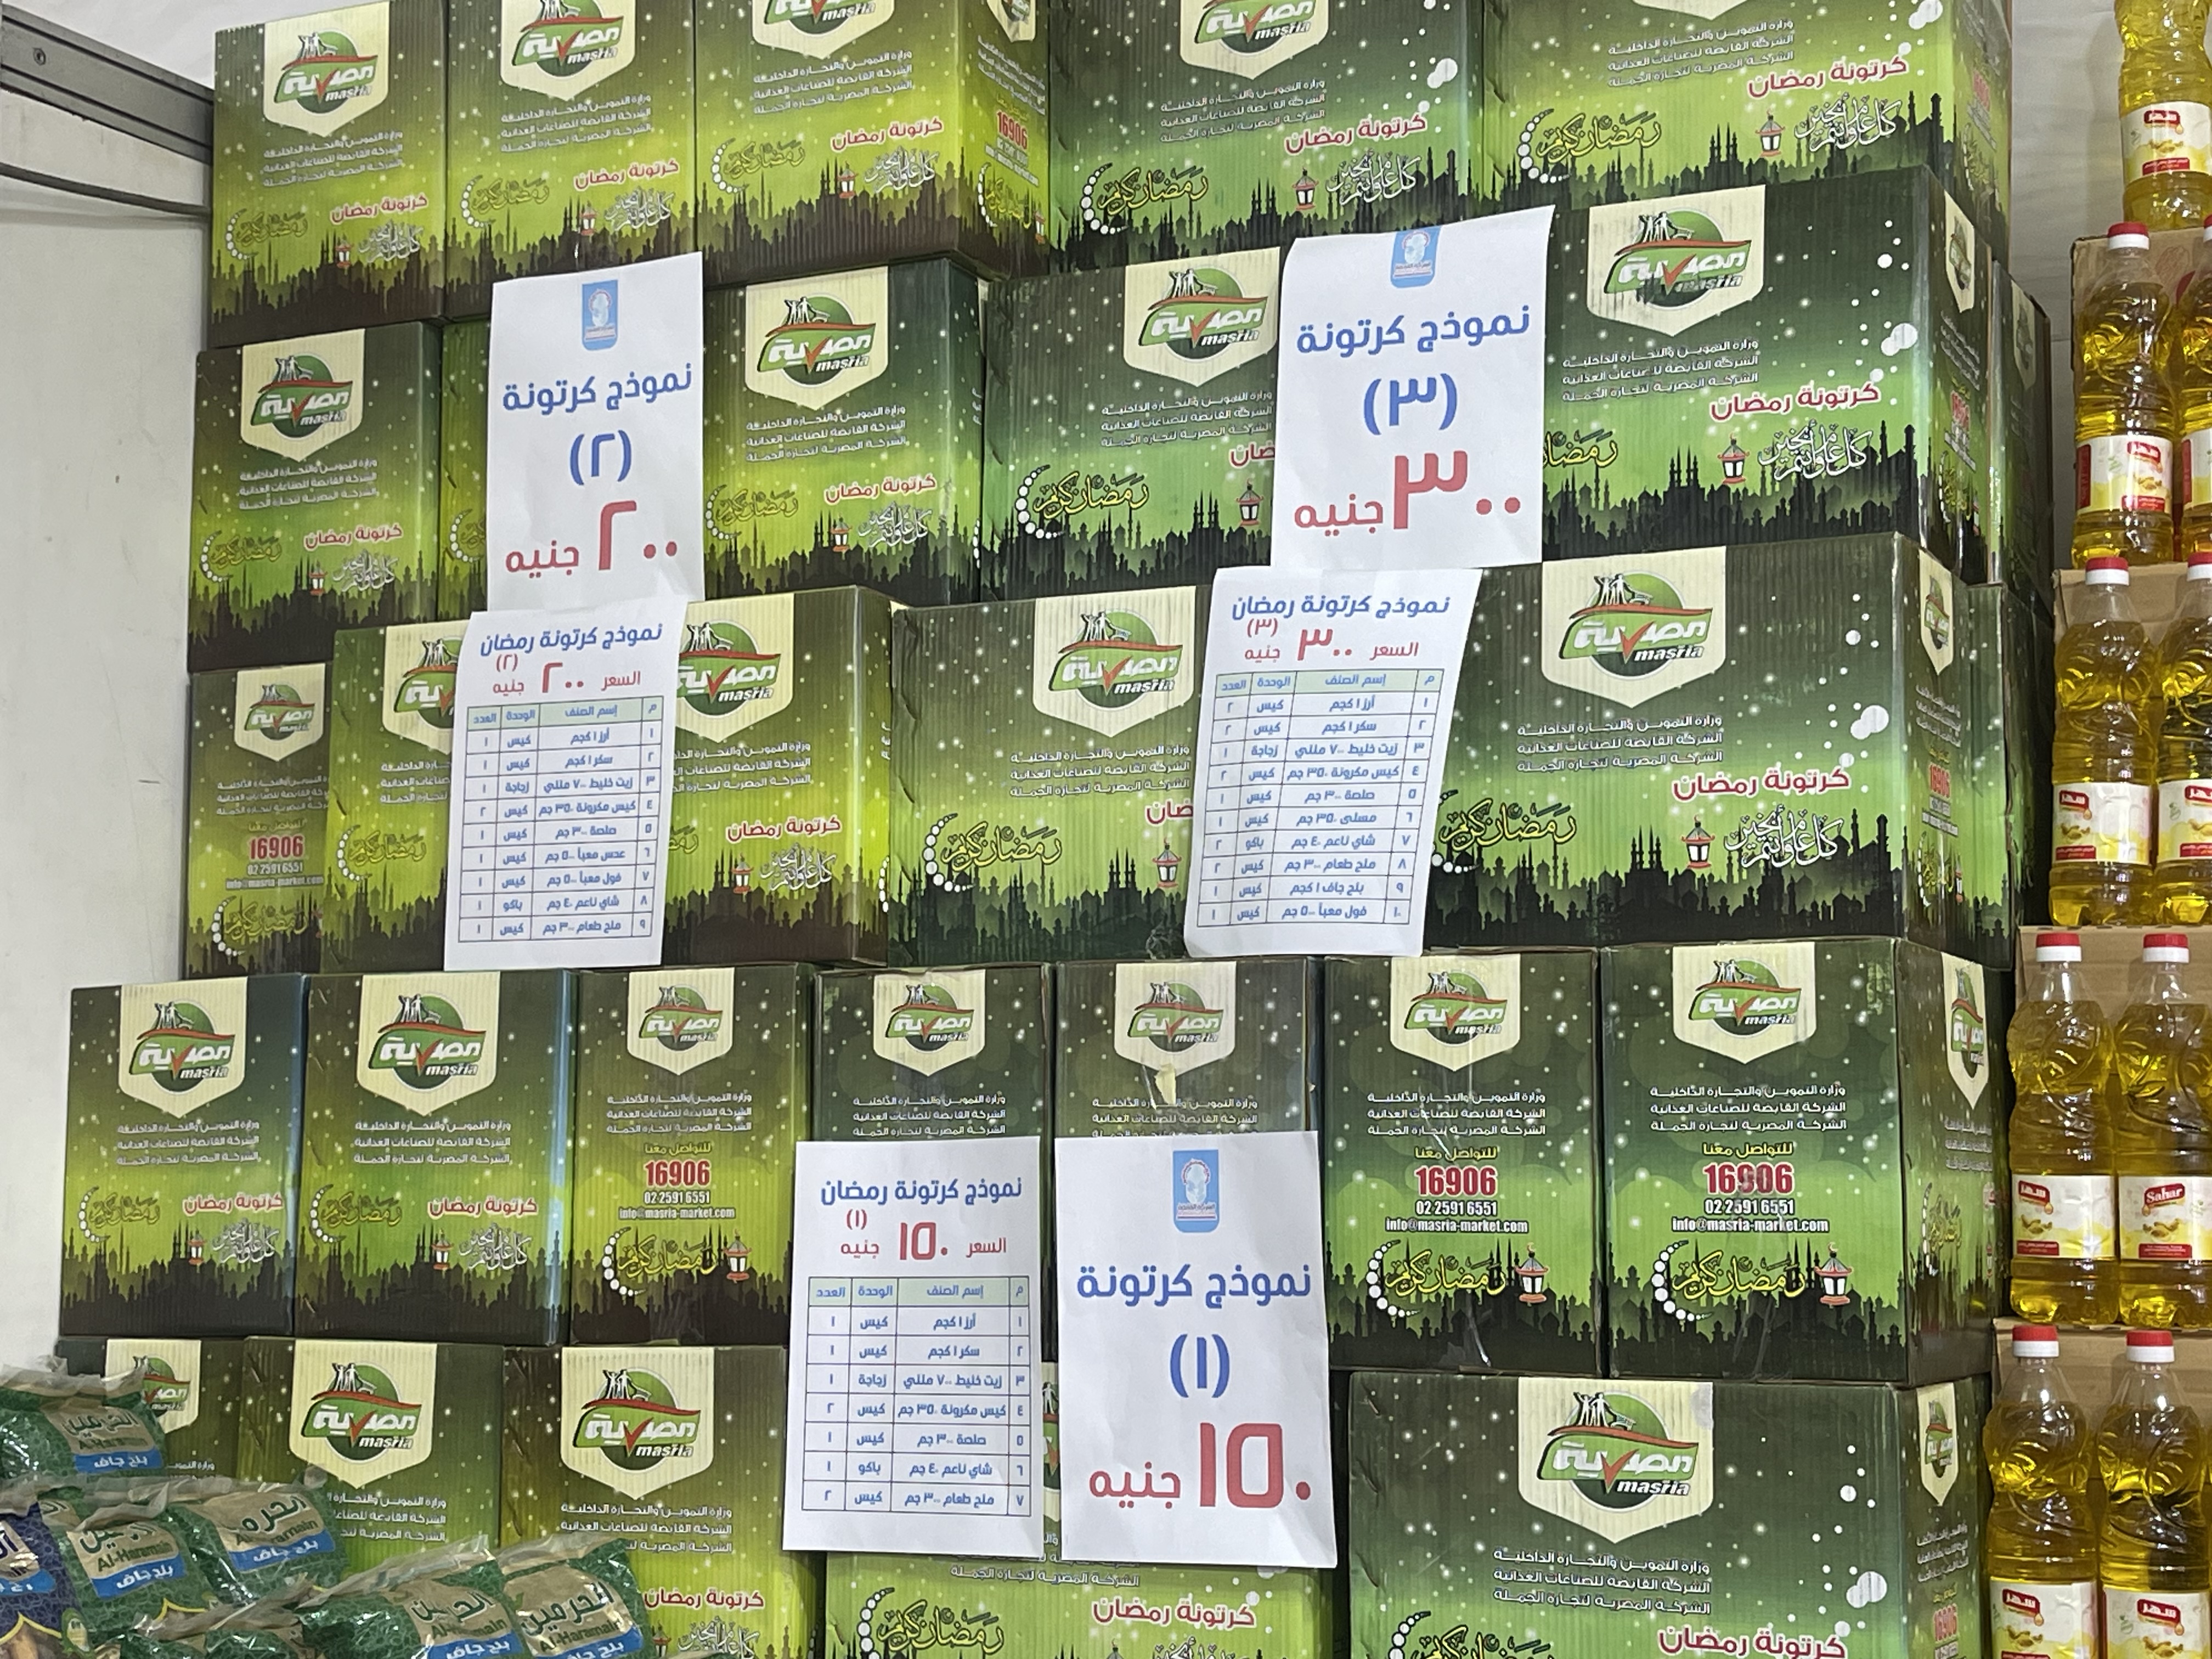 مصرية
masria
وزارة التموين والتجارة الداخلية
الشركة القابضة للصناعات الغذائية
الشركة المصرية لتجارة الجملة
كرتونة رمضان
رمضان كريم
كل عام وأنتم بخير
نموذج كرتونة
(٢)
٢٠٠ جنيه
نموذج كرتونة
(٣)
٣٠٠ جنيه
نموذج كرتونة رمضان
(٢)
السعر ٢٠٠ جنيه
م إسم الصنف الوحدة العدد
١ أرز ١ كجم كيس ١
٢ سكر ١ كجم كيس ١
٣ زيت خليط ٧٠٠ مللي زجاجة ١
٤ كيس مكرونة ٣٥٠ جم كيس ٢
٥ صلصة ٣٠٠ جم كيس ١
٦ عدس معبأ ٥٠٠ جم كيس ١
٧ فول معبأ ٥٠٠ جم كيس ١
٨ شاي ناعم ٤٠ جم باكو ١
٩ ملح طعام ٣٠٠ جم كيس ١
نموذج كرتونة رمضان
(٣)
السعر ٣٠٠ جنيه
م إسم الصنف الوحدة العدد
١ أرز ١ كجم كيس ٢
٢ سكر ١ كجم كيس ٢
٣ زيت خليط ٧٠٠ مللي زجاجة ١
٤ كيس مكرونة ٣٥٠ جم كيس ٢
٥ صلصة ٣٠٠ جم كيس ١
٦ مسلى ٣٥٠ جم كيس ١
٧ شاي ناعم ٤٠ جم باكو ٢
٨ ملح طعام ٣٠٠ جم كيس ٢
٩ بلح جاف ١ كجم كيس ١
١٠ فول معبأ ٥٠٠ جم كيس ١
للتواصل معنا
16906
02 2591 6551
info@masria-market.com
نموذج كرتونة رمضان
(١)
السعر ١٥٠ جنيه
م إسم الصنف الوحدة العدد
١ أرز ١ كجم كيس ١
٢ سكر ١ كجم كيس ١
٣ زيت خليط ٧٠٠ مللي زجاجة ١
٤ كيس مكرونة ٣٥٠ جم كيس ٢
٥ صلصة ٣٠٠ جم كيس ١
٦ شاي ناعم ٤٠ جم باكو ١
٧ ملح طعام ٣٠٠ جم كيس ٢
نموذج كرتونة
(١)
١٥٠ جنيه
سهر
Sahar
الحرمين
Al-Haramain
بلح جاف